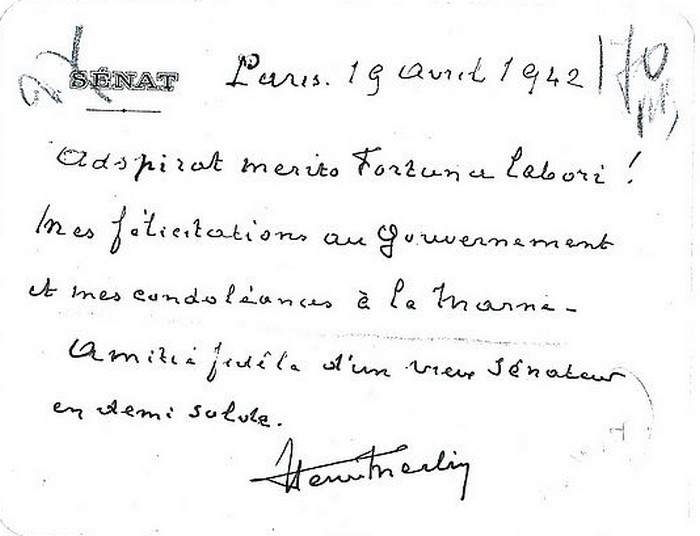 SÉNAT
Paris. 19 avril 1942
Adspirat merito Fortuna labori !
Mes félicitations au Gouvernement
et mes condoléances à la Marne -
Amitié fidèle d'un vieux Sénateur
en demi solde.
Henri Merlin